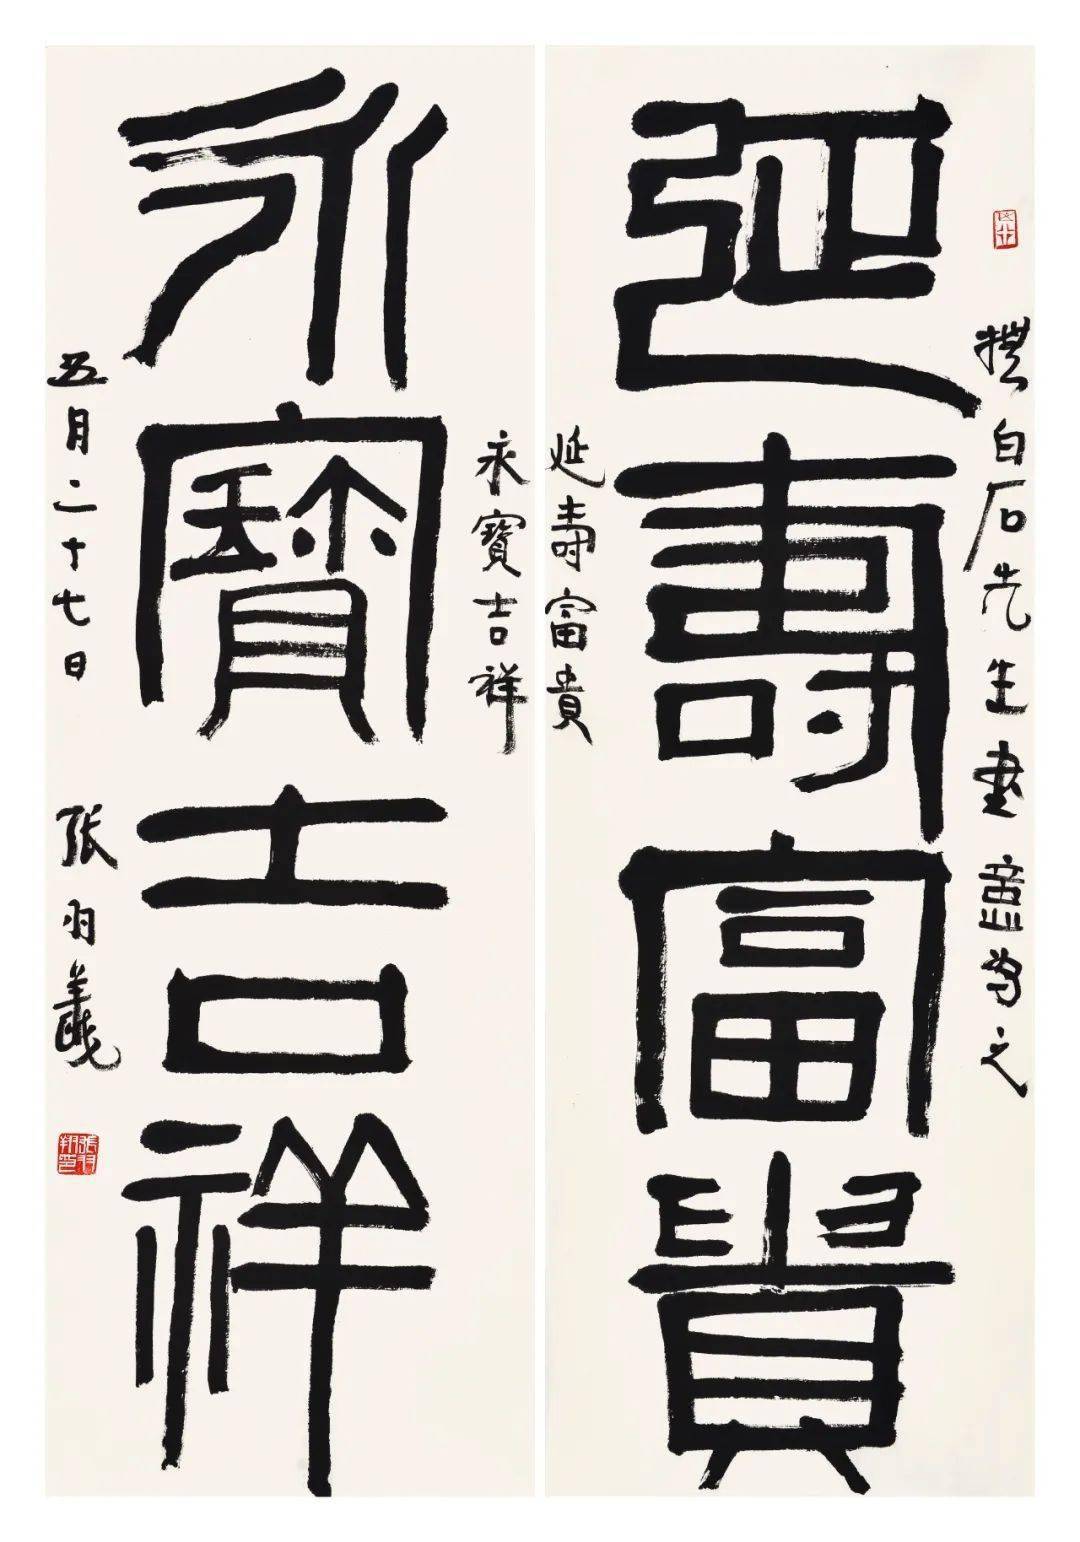 白石先生書意為之
延壽富貴
延壽富貴
永寶吉祥
永寶吉祥
五月二十七日 張羽